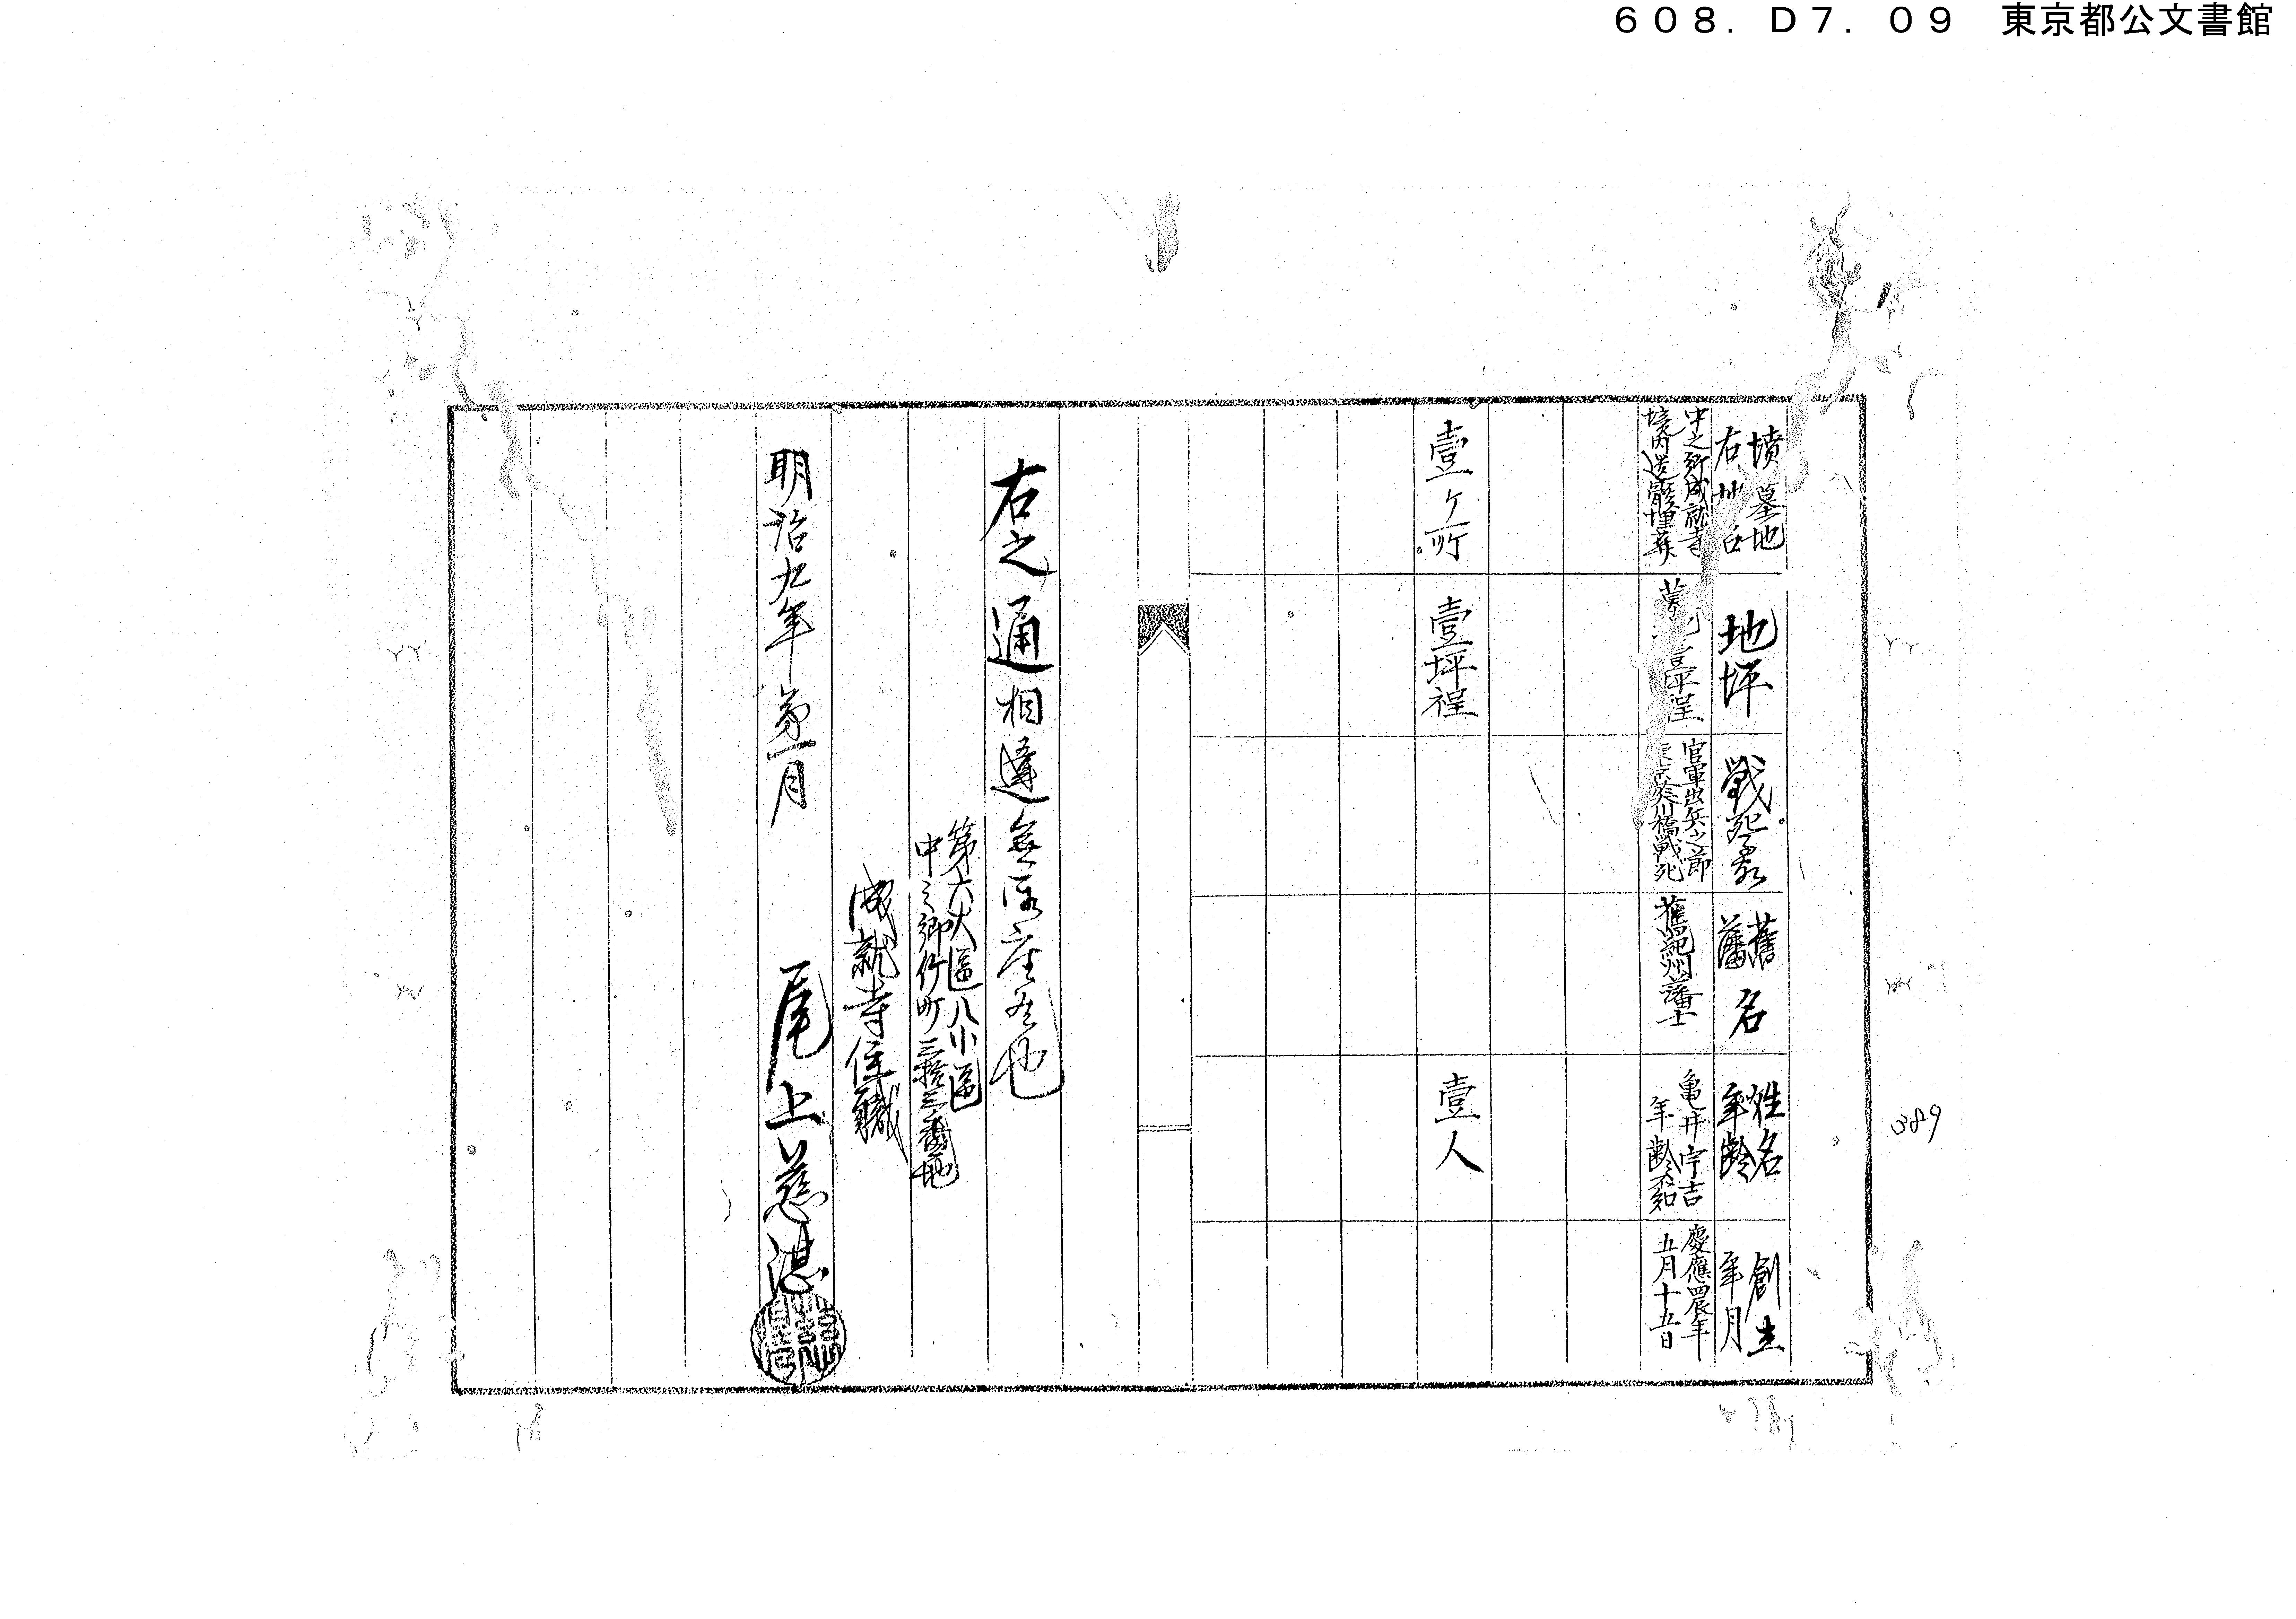 608. D7. 09 東京都公文書館
墳墓地
右地
地坪
戦死
舊
藩名
姓名
年齢
創立
年月
中之郷成就寺
境内遺骸埋葬
壹坪程
官軍出兵之節
川橋戦死
舊紀州藩士
亀井宇吉
年齢不知
慶應四辰年
五月十五日
壹ヶ所
壹坪程
壹人
右之通相違無御座候也
第六大區八小區
中之郷竹町三拾三番地
成就寺住職
明治九年第一月
尾上慈湛
389